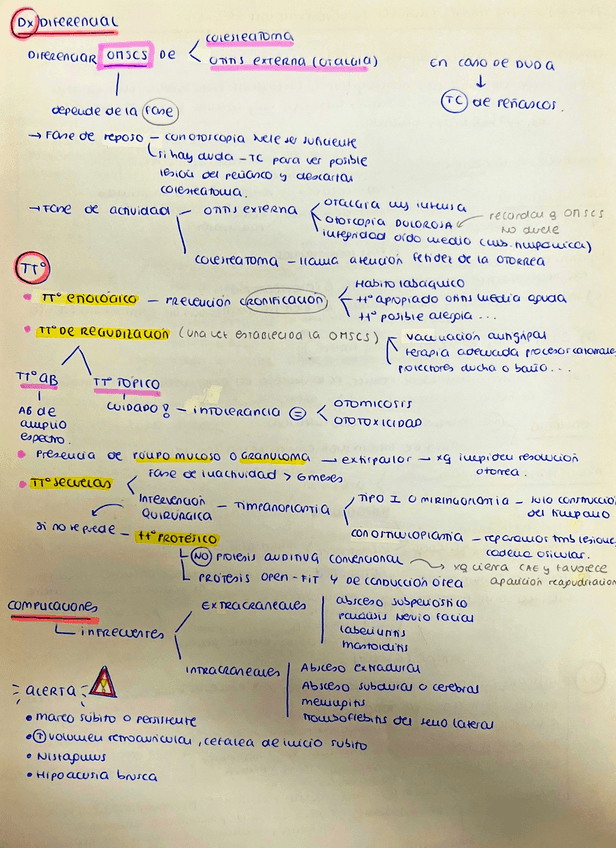 DX DIFERENCIAL
DIFERENCIAR OMSCS DE
COLESTEATOMA
OTITIS EXTERNA (OTALGIA)
EN CASO DE DUDA
TC de PEÑASCOS.
depende de la FASE
→ FASE de reposo - con otoscopia suele ser suficiente
si hay duda - TC para ver posible
lesión del peñasco y descartar
colesteatoma.
→ FASE de actividad - OTITIS EXTERNA
OTALGIA muy intensa
OTOSCOPIA DOLOROSA
integridad oído medio (memb. timpánica)
recordar q OMSCS
NO duele
COLESTEATOMA - llama atención fetidez de la OTORREA
TTº
TTº ETIOLÓGICO - PREVENCIÓN CRONIFICACIÓN
Hábito tabáquico
ttº apropiado otitis media aguda
ttº posible alergia ...
TTº DE REAGUDIZACIÓN (una vez establecida la OMSCS)
vacunación antigripal
terapia adecuada procesos catarrales
protectores ducha o baño ...
TTº AB
TTº TÓPICO
AB de
amplio
espectro.
CUIDADO! - INTOLERANCIA =
OTOMICOSIS
OTOTOXICIDAD
Presencia de PÓLIPO MUCOSO O GRANULOMA → extirparlor → xq impiden resolución
otorrea.
TTº SECUELAS
FASE de inactividad > 6 meses
Intervención
Quirúrgica
- TIMPANOPLASTIA
TIPO I O MIRINGOPLASTIA - solo construcción
del tímpano
CON OSTICULOPLASTIA - reparamos tmb lesiones
cadena osicular.
si no se puede - ttº PROTÉSICO
NO PRÓTESIS AUDITIVA CONVENCIONAL
xq cierra CAE y favorece
aparición reagudización
PRÓTESIS OPEN-FIT Y DE CONDUCCIÓN ÓREA
COMPLICACIONES
INFRECUENTES
EXTRACRANEALES
absceso subperióstico
parálisis nervio facial
laberintitis
mastoiditis
INTRACRANEALES
Absceso extradural
Absceso subdural o cerebral
meningitis
tromboflebitis del seno lateral
ALERTA
• mareo súbito o persistente
• ↑ volumen retroauricular, cefalea de inicio súbito
• Nistagmus
• Hipoacusia brusca